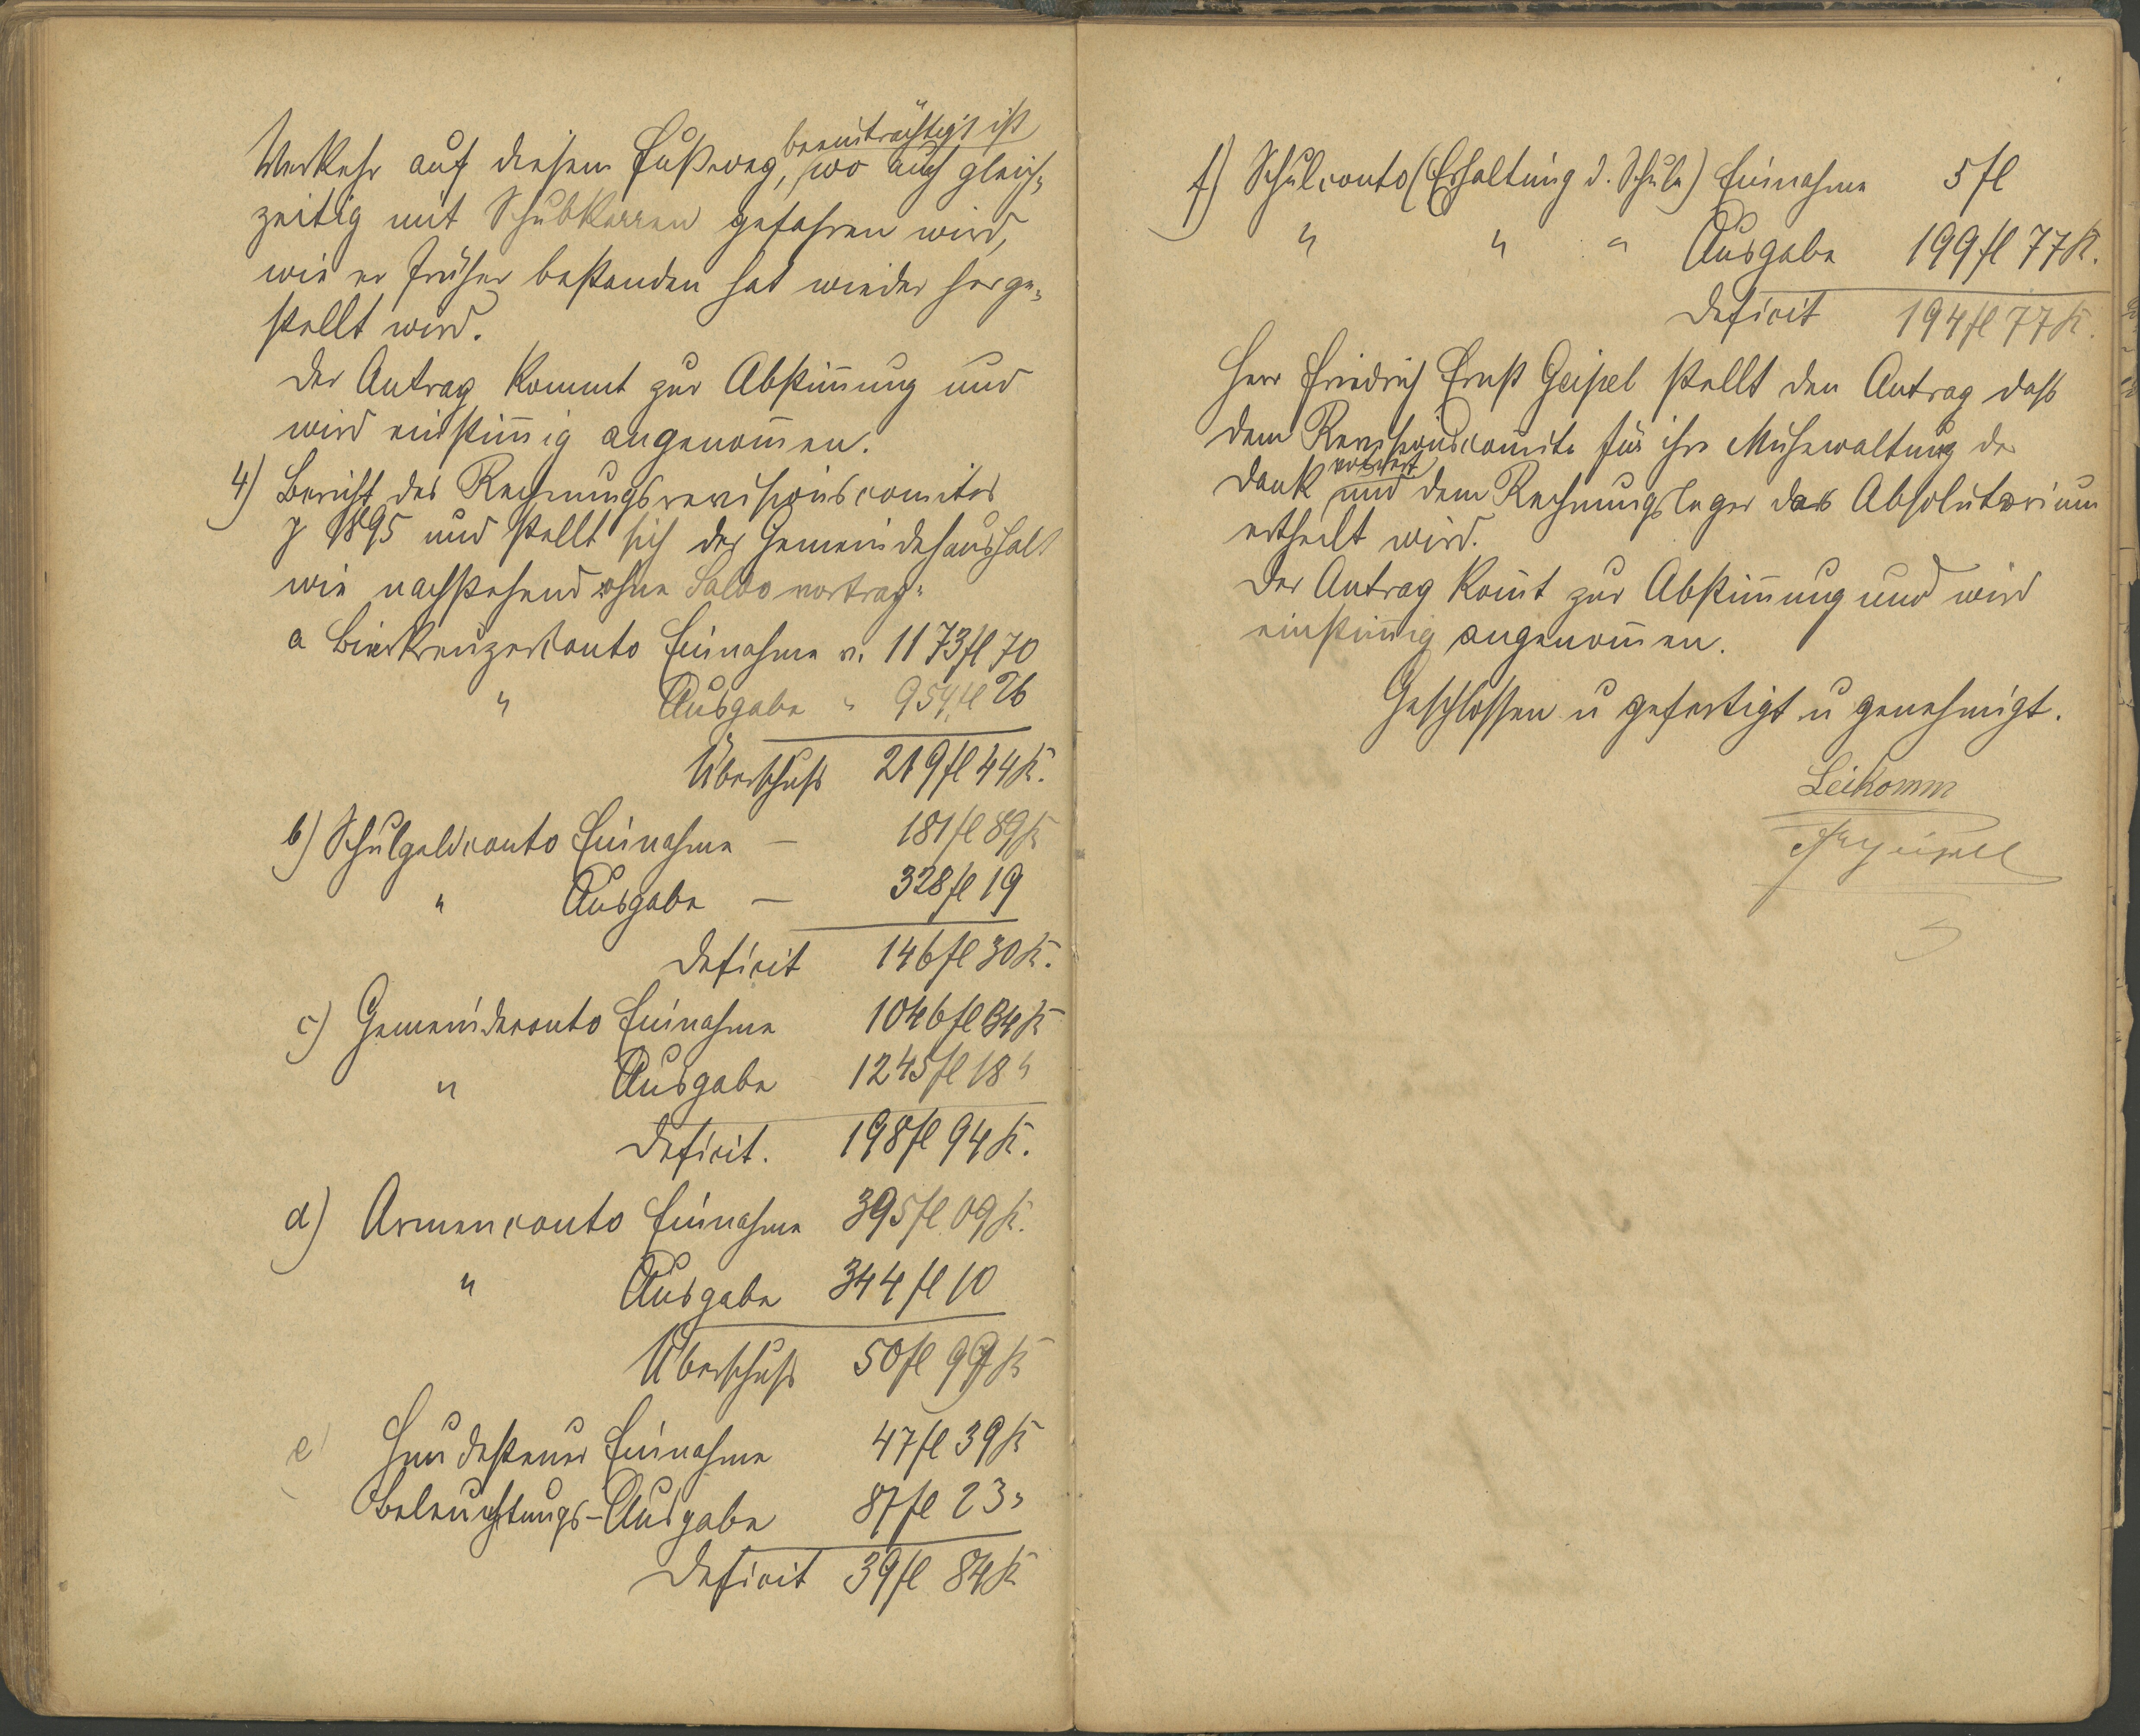 Verkehr auf diesem Fußweg, beeinträchtigt ist wo auch gleich-
zeitig mit Schubkarren gefahren wird,
wie er früher bestanden hat wieder herge-
stellt wird.
Der Antrag kommt zur Abstim̄ung und
wird einstim̄ig angenom̄en.
4) Bericht des Rechnungsrevisionscomites
p 1895 und stellt sich der Gemeindehaushalt
wie nachstehend ohne Saldovortrag:
a Bierkreuzerconto Einnahme v. 1173 fl 70
" Ausgabe " 954 fl 26
Überschuß 219 fl 44 K.
b) Schulgeldconto Einnahme — 181 fl 89 K
" Ausgabe — 328 fl 19
Deficit 146 fl 30 K.
c) Gemeindeconto Einnahme 1046 fl 34 K
" Ausgabe 1245 fl 18 "
Deficit. 198 fl 94 K.
d) Armenconto Einnahme 395 fl 09 K.
" Ausgabe 344 fl 10
Überschuß 50 fl 99 K
e) Hundesteuer Einnahme 47 fl 39 K
Beleuchtungs-Ausgabe 87 fl 23 "
Deficit 39 fl 84 K
f) Schulconto (Erhaltung d. Schule) Einnahme 5 fl
" " " Ausgabe 199 fl 77 K.
Deficit 194 fl 77 K.
Herr Friedrich Ernst Geipel stellt den Antrag daß
dem Revisionscomite für ihre Mühewaltung der
Dank votiert und dem Rechnungsleger das Absolutorium
ertheilt wird.
Der Antrag kom̄t zur Abstim̄ung und wird
einstim̄ig angenom̄en.
Geschlossen u gefertigt u genehmigt.
Leikomm
Geipel